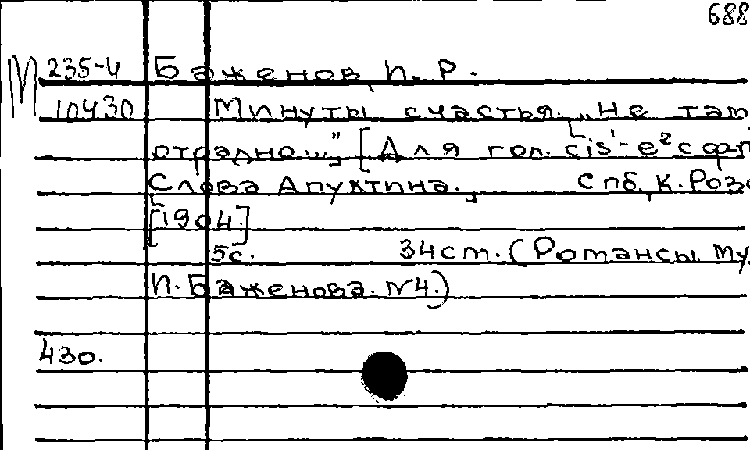 688
М 235-4 Баженов, П. Р.
10430 Минуты счастья. „Не там
отрадно...", [Для гол. cis¹-e² с фп
Слова Апухтина., Спб, К.
[1904]
5с. 34см. (Романсы
П. Баженова. №4.)
430.